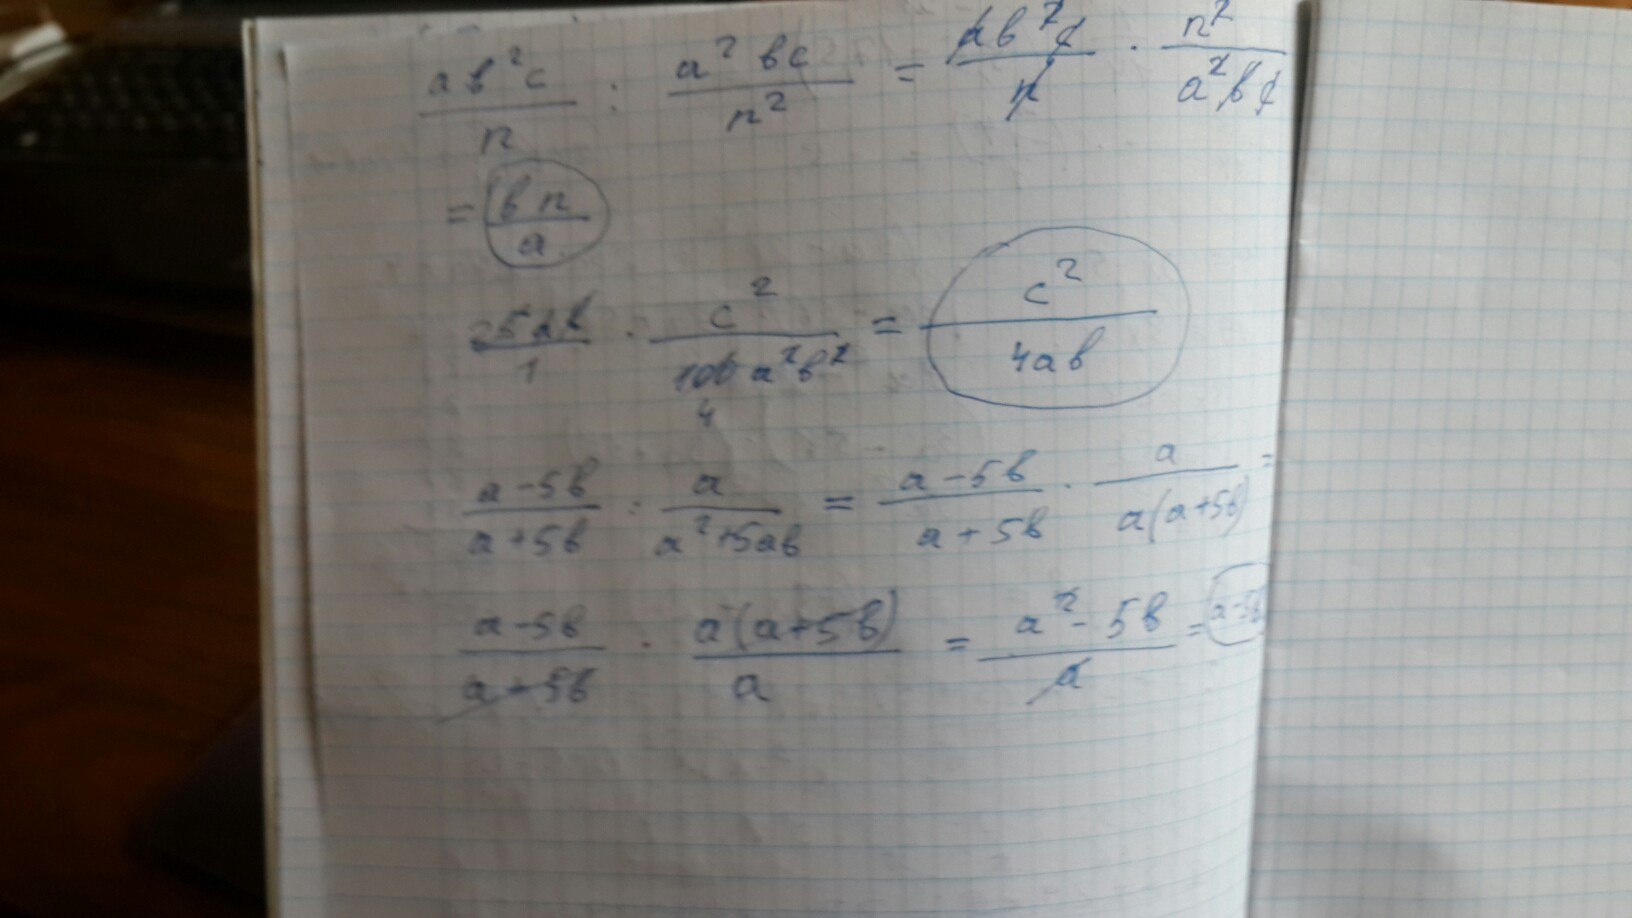 ab²c/n : a²bc/n² = ab²c/n · n²/a²bc
= bn/a
25ab/1 · c²/100a²b² 4 = c²/4ab
a-5b/a+5b : a/a²+5ab = a-5b/a+5b · a/a(a+5b) =
a-5b/a+5b · a(a+5b)/a = a²-5b/a = a-5b